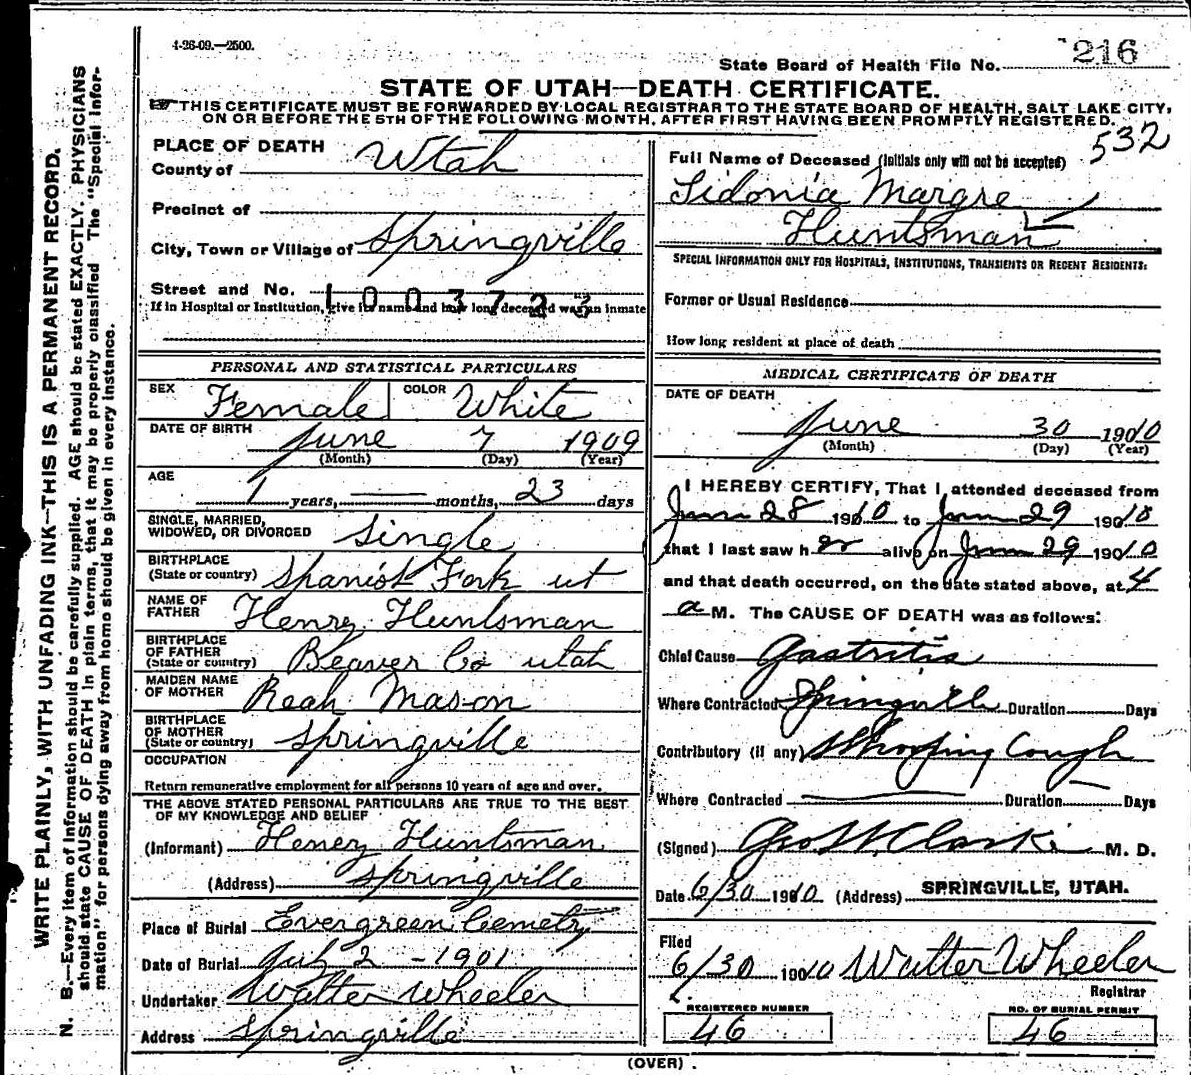 4-26-09.—2500.
State Board of Health File No. 216
STATE OF UTAH—DEATH CERTIFICATE.
THIS CERTIFICATE MUST BE FORWARDED BY LOCAL REGISTRAR TO THE STATE BOARD OF HEALTH, SALT LAKE CITY,
ON OR BEFORE THE 5TH OF THE FOLLOWING MONTH, AFTER FIRST HAVING BEEN PROMPTLY REGISTERED.
532
WRITE PLAINLY, WITH UNFADING INK—THIS IS A PERMANENT RECORD.
N. B.—Every item of information should be carefully supplied. AGE should be stated EXACTLY. PHYSICIANS
should state CAUSE OF DEATH in plain terms, that it may be properly classified The "Special Infor-
mation" for persons dying away from home should be given in every instance.
PLACE OF DEATH
County of Utah
Precinct of
City, Town or Village of Springville
Street and No.
1003723
If in Hospital or Institution, give its name and how long deceased was an inmate
PERSONAL AND STATISTICAL PARTICULARS
SEX Female COLOR White
DATE OF BIRTH June 7 1909
(Month) (Day) (Year)
AGE
1 years, — months, 23 days
SINGLE, MARRIED,
WIDOWED, OR DIVORCED Single
BIRTHPLACE
(State or country) Spanish Fork ut
NAME OF
FATHER Henry Huntsman
BIRTHPLACE
OF FATHER
(State or country) Beaver Co utah
MAIDEN NAME
OF MOTHER Reah Mason
BIRTHPLACE
OF MOTHER
(State or country) Springville
OCCUPATION
Return remunerative employment for all persons 10 years of age and over.
THE ABOVE STATED PERSONAL PARTICULARS ARE TRUE TO THE BEST
OF MY KNOWLEDGE AND BELIEF
(Informant) Henry Huntsman
(Address) Springville
Place of Burial Evergreen Cemetry
Date of Burial 2 - 1901
Undertaker Walter Wheeler
Address Springville
Full Name of Deceased (Initials only will not be accepted)
Sidonia Margre
Huntsman
SPECIAL INFORMATION ONLY FOR HOSPITALS, INSTITUTIONS, TRANSIENTS OR RECENT RESIDENTS:
Former or Usual Residence
How long resident at place of death
MEDICAL CERTIFICATE OF DEATH
DATE OF DEATH
June 30 1910
(Month) (Day) (Year)
I HEREBY CERTIFY, That I attended deceased from
June 28 1910 to June 29 1910
that I last saw her alive on June 29 1910
and that death occurred, on the date stated above, at 4
a M. The CAUSE OF DEATH was as follows:
Chief Cause Gastritis
Where Contracted Springville Duration Days
Contributory (if any) Whooping Cough
Where Contracted — Duration Days
(Signed) Geo W. Clark M. D.
Date 6/30 1910 (Address) SPRINGVILLE, UTAH.
Filed
6/30 1910 Walter Wheeler
Registrar
REGISTERED NUMBER
46
NO. OF BURIAL PERMIT
46
(OVER)